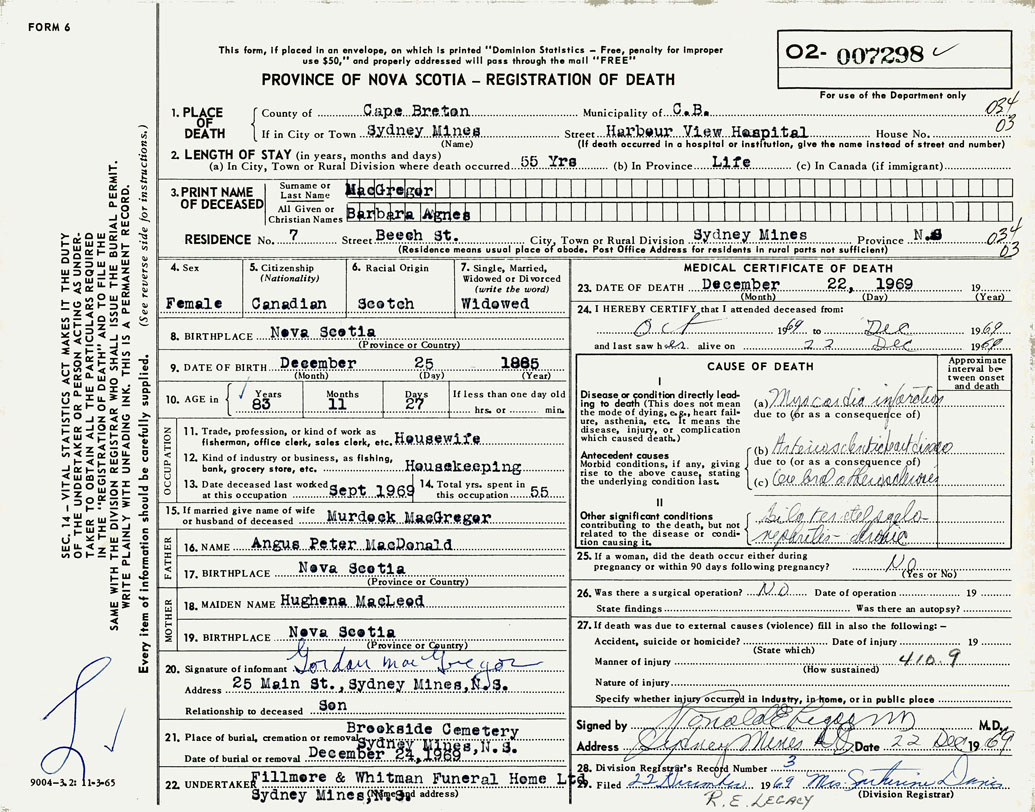 FORM 6
This form, if placed in an envelope, on which is printed "Dominion Statistics – Free, penalty for improper
use $50," and properly addressed will pass through the mail "FREE"
PROVINCE OF NOVA SCOTIA – REGISTRATION OF DEATH
O2- 007298 ✓
For use of the Department only
034
03
1. PLACE OF DEATH
County of Cape Breton Municipality of C.B.
If in City or Town Sydney Mines Street Harbour View Hospital House No.
(Name) (If death occurred in a hospital or institution, give the name instead of street and number)
2. LENGTH OF STAY (in years, months and days)
(a) In City, Town or Rural Division where death occurred 55 Yrs (b) In Province Life (c) In Canada (if immigrant)
3. PRINT NAME OF DECEASED
Surname or Last Name MacGregor
All Given or Christian Names Barbara Agnes
RESIDENCE No. 7 Street Beech St. City, Town or Rural Division Sydney Mines Province N.S
034
03
(Residence means usual place of abode. Post Office Address for residents in rural parts not sufficient)
4. Sex
Female
5. Citizenship
(Nationality)
Canadian
6. Racial Origin
Scotch
7. Single, Married,
Widowed or Divorced
(write the word)
Widowed
8. BIRTHPLACE Nova Scotia
(Province or Country)
9. DATE OF BIRTH December 25 1885
(Month) (Day) (Year)
10. AGE in Years Months Days If less than one day old
✓ 83 11 27 hrs. or min.
OCCUPATION
11. Trade, profession, or kind of work as
fisherman, office clerk, sales clerk, etc. Housewife
12. Kind of industry or business, as fishing,
bank, grocery store, etc. Housekeeping
13. Date deceased last worked
at this occupation Sept 1969
14. Total yrs. spent in
this occupation 55
15. If married give name of wife
or husband of deceased Murdock MacGregor
FATHER
16. NAME Angus Peter MacDonald
17. BIRTHPLACE Nova Scotia
(Province or Country)
MOTHER
18. MAIDEN NAME Hughena MacLeod
19. BIRTHPLACE Nova Scotia
(Province or Country)
20. Signature of informant Gordan MacGregor
Address 25 Main St., Sydney Mines, N.S.
Relationship to deceased Son
21. Place of burial, cremation or removal Brookside Cemetery
Sydney Mines, N.S.
Date of burial or removal December 24, 1969
22. UNDERTAKER Fillmore & Whitman Funeral Home Ltd
Sydney Mines, N.S.
(Name and address)
MEDICAL CERTIFICATE OF DEATH
23. DATE OF DEATH December 22, 1969 19
(Month) (Day) (Year)
24. I HEREBY CERTIFY that I attended deceased from:
Oct 1969 to Dec 1969
and last saw her alive on 22 Dec 1969
CAUSE OF DEATH
Approximate
interval be-
tween onset
and death
I
Disease or condition directly lead-
ing to death (This does not mean
the mode of dying, e.g., heart fail-
ure, asthenia, etc. It means the
disease, injury, or complication
which caused death.)
(a) Myocardia infarction
due to (or as a consequence of)
Antecedent causes
Morbid conditions, if any, giving
rise to the above cause, stating
the underlying condition last.
(b)
due to (or as a consequence of)
(c)
II
Other significant conditions
contributing to the death, but not
related to the disease or condi-
tion causing it.
25. If a woman, did the death occur either during
pregnancy or within 90 days following pregnancy? No
(Yes or No)
26. Was there a surgical operation? NO Date of operation 19
State findings Was there an autopsy?
27. If death was due to external causes (violence) fill in also the following: –
Accident, suicide or homicide? Date of injury 19
(State which)
Manner of injury 410.9
(How sustained)
Nature of injury
Specify whether injury occurred in Industry, in home, or in public place
Signed by M.D.
Address Sydney Mines NS Date 22 Dec 1969
28. Division Registrar's Record Number 3
29. Filed 22 December 1969 Mrs
(Division Registrar)
R.E. LEGACY
SEC. 14 – VITAL STATISTICS ACT MAKES IT THE DUTY
OF THE UNDERTAKER OR PERSON ACTING AS UNDER-
TAKER TO OBTAIN ALL THE PARTICULARS REQUIRED
IN THE "REGISTRATION OF DEATH" AND TO FILE THE
SAME WITH THE DIVISION REGISTRAR WHO SHALL ISSUE THE BURIAL PERMIT.
WRITE PLAINLY WITH UNFADING INK. THIS IS A PERMANENT RECORD.
Every item of information should be carefully supplied. (See reverse side for instructions.)
9004–3.2: 11-3-65